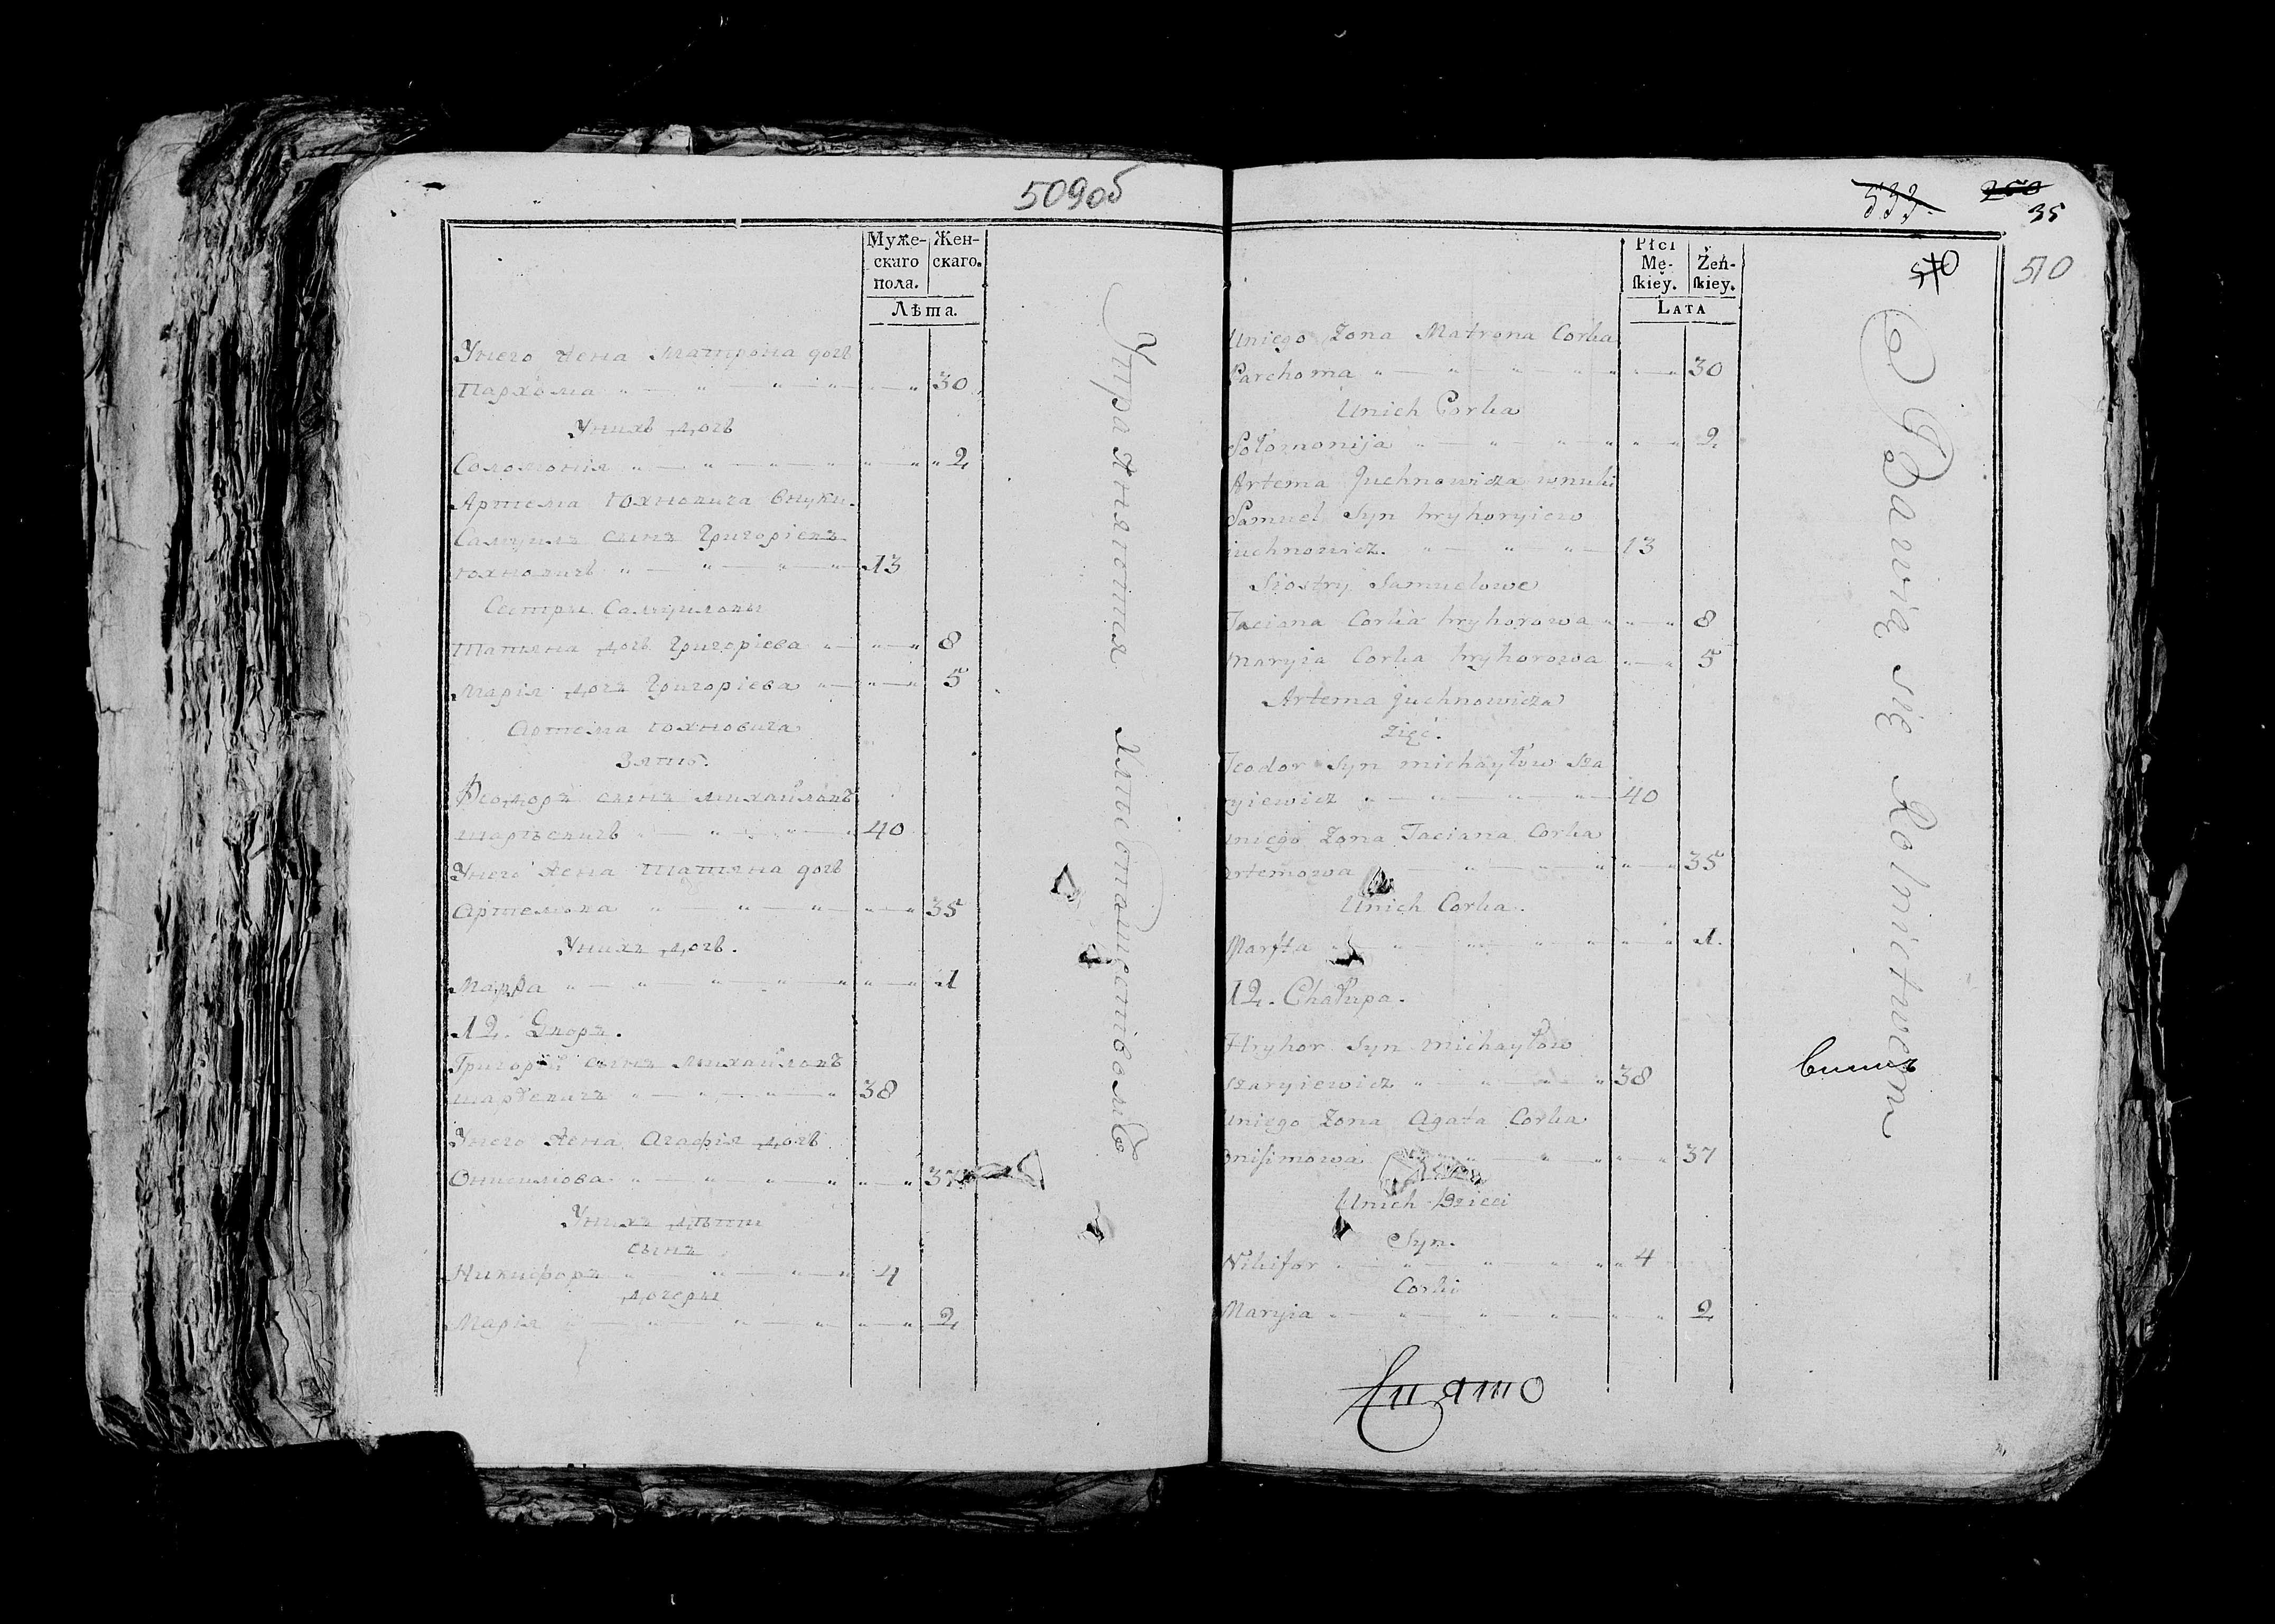 509об
Муже-
скаго
пола.
Жен-
скаго.
Лѣта.
Унего Жена Матрона дочь
Пархома 30
Унихъ дочь
Соломонія 2
Артема Юхновича внуки.
Самуилъ сынъ Григоріевъ
Юхновичъ 13
Сестры Самуиловы
Татьяна дочь Григоріева 8
Марія дочь Григоріева 5
Артема Юхновича
Зять.
Феодоръ сынъ Михайловъ
40
Унего Жена Татьяна дочь
Артемова 35
Унихъ дочь.
Марфа 1
12. Дворъ.
Григорій сынъ Михайловъ
38
Унего Жена Агафія дочь
Онисимова 37
Унихъ дѣти
сынъ
Никифоръ 4
дочери
Марія 2
Упражняются хлѣбопашествомъ
533.
250
35
510
510
Płci
Mę-
ſkiey.
Żeń-
ſkiey.
Lata
Uniego Żona Matrona Corka
Parchoma 30
Unich Corka
Sołomonija 2
Artema Juchnowicza wnuki
Samuel Syn hryhoryiew
juchnowicz. 13
Siostry Samuelowe
Taciana Corka hryhorowa 8
Maryia Corka hryhorowa 5
Artema juchnowicza
Zięć.
Teodor Syn michayłow Sza
ryiewicz 40
uniego Żona Taciana Corka
artemowa 35
Unich Corka.
Marfta 1.
12. Chałupa.
Hryhor Syn michayłow
Szaryiewicz 38
uniego Żona Agata Corka
onisimowa 37
Unich Dzieci
Syn.
Nikifor 4
Corki
Maryia 2
Bawią się Rolnictwem